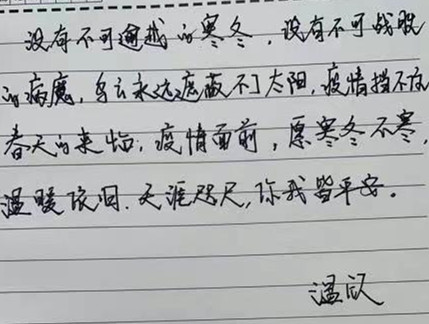 没有不可逾越的寒冬，没有不可战胜
的病魔，乌云永远遮蔽不了太阳，疫情挡不住
春天的来临，疫情面前，愿寒冬不寒，
温暖依旧，天涯咫尺，你我皆平安。
温欣